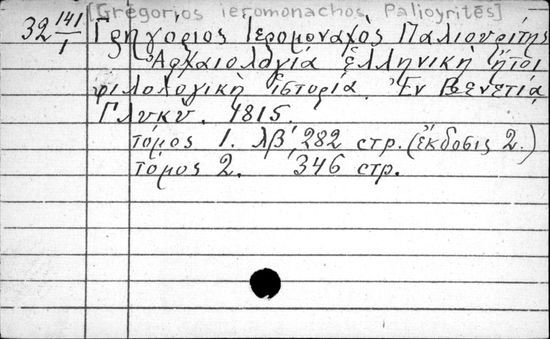 [Grēgorios ieromonachos Palioyritēs]
32 141/1 Γρηγόριος Ἱερομοναχὸς Παλιουρίτης
Ἀρχαιολογία ἑλληνικὴ ἤτοι
φιλολογικὴ ἱστορία. Ἐν Βενετίᾳ
Γλυκὺ. 1815.
τόμος 1. λβ', 282 στρ. (ἔκδοσις 2.)
τόμος 2. 346 στρ.